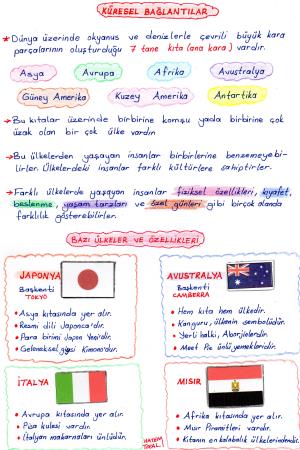 KÜRESEL BAĞLANTILAR
* Dünya üzerinde okyanus ve denizlerle çevrili büyük kara
parçalarının oluşturduğu 7 tane kıta (ana kara) vardır.
Asya Avrupa Afrika Avustralya
Güney Amerika Kuzey Amerika Antartika
→ Bu kıtalar üzerinde birbirine komşu yada birbirine çok
uzak olan bir çok ülke vardır
→ Bu ülkelerden yaşayan insanlar birbirlerine benzemeyebi-
lirler. Ülkelerdeki insanlar farklı kültürlere sahiptirler.
→ Farklı ülkelerde yaşayan insanlar fiziksel özellikleri, kıyafet,
beslenme, yaşam tarzları ve özel günleri gibi birçok alanda
farklılık gösterebilirler.
BAZI ÜLKELER VE ÖZELLİKLERİ
JAPONYA
Başkenti
TOKYO
• Asya kıtasında yer alır.
• Resmi dili Japonca'dır.
• Para birimi Japon Yeni'dir.
• Geleneksel giysi Kimono'dur.
AVUSTRALYA
Başkenti
CAMBERRA
• Hem kıta hem ülkedir.
• Kanguru, ülkenin sembolüdür.
• Yerli halkı, Aborjinlerdir.
• Meet Pie ünlü yemekleridir.
İTALYA
• Avrupa kıtasında yer alır.
• Piza kulesi vardır.
• İtalyan makarnaları ünlüdür.
MISIR
• Afrika kıtasında yer alır.
• Mısır Piramitleri vardır.
• Kıtanın en kalabalık ülkelerindendir.